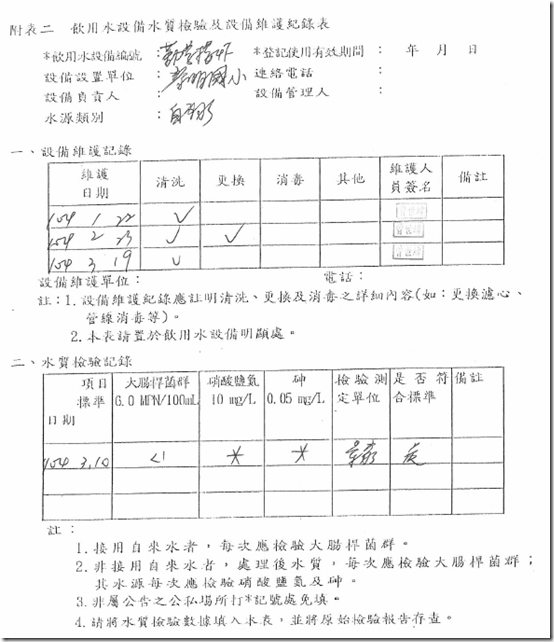 附表二　飲用水設備水質檢驗及設備維護紀錄表
*飲用水設備編號： *登記使用有效期間：　年　月　日
設備設置單位：黎明國小 連絡電話：
設備負責人： 設備管理人：
水源類別：自來水
一、設備維護記錄
維護日期 清洗 更換 消毒 其他 維護人員簽名 備註
104 1 22 ✓
104 2 23 ✓ ✓
104 3 19 ✓
設備維護單位： 電話：
註：1.設備維護紀錄應註明清洗、更換及消毒之詳細內容(如：更換濾心、
管線消毒等)。
2.本表請置於飲用水設備明顯處。
二、水質檢驗記錄
項目 大腸桿菌群 硝酸鹽氮 砷 檢驗測 是否符 備註
標準 6.0 MPN/100mL 10 mg/L 0.05 mg/L 定單位 合標準
日期
104 3.10 <1 * *
註：
1.接用自來水者，每次應檢驗大腸桿菌群。
2.非接用自來水者，處理後水質，每次應檢驗大腸桿菌群；
其水源每次應檢驗硝酸鹽氮及砷。
3.非屬公告之公私場所打*記號處免填。
4.請將水質檢驗數據填入本表，並將原始檢驗報告存查。